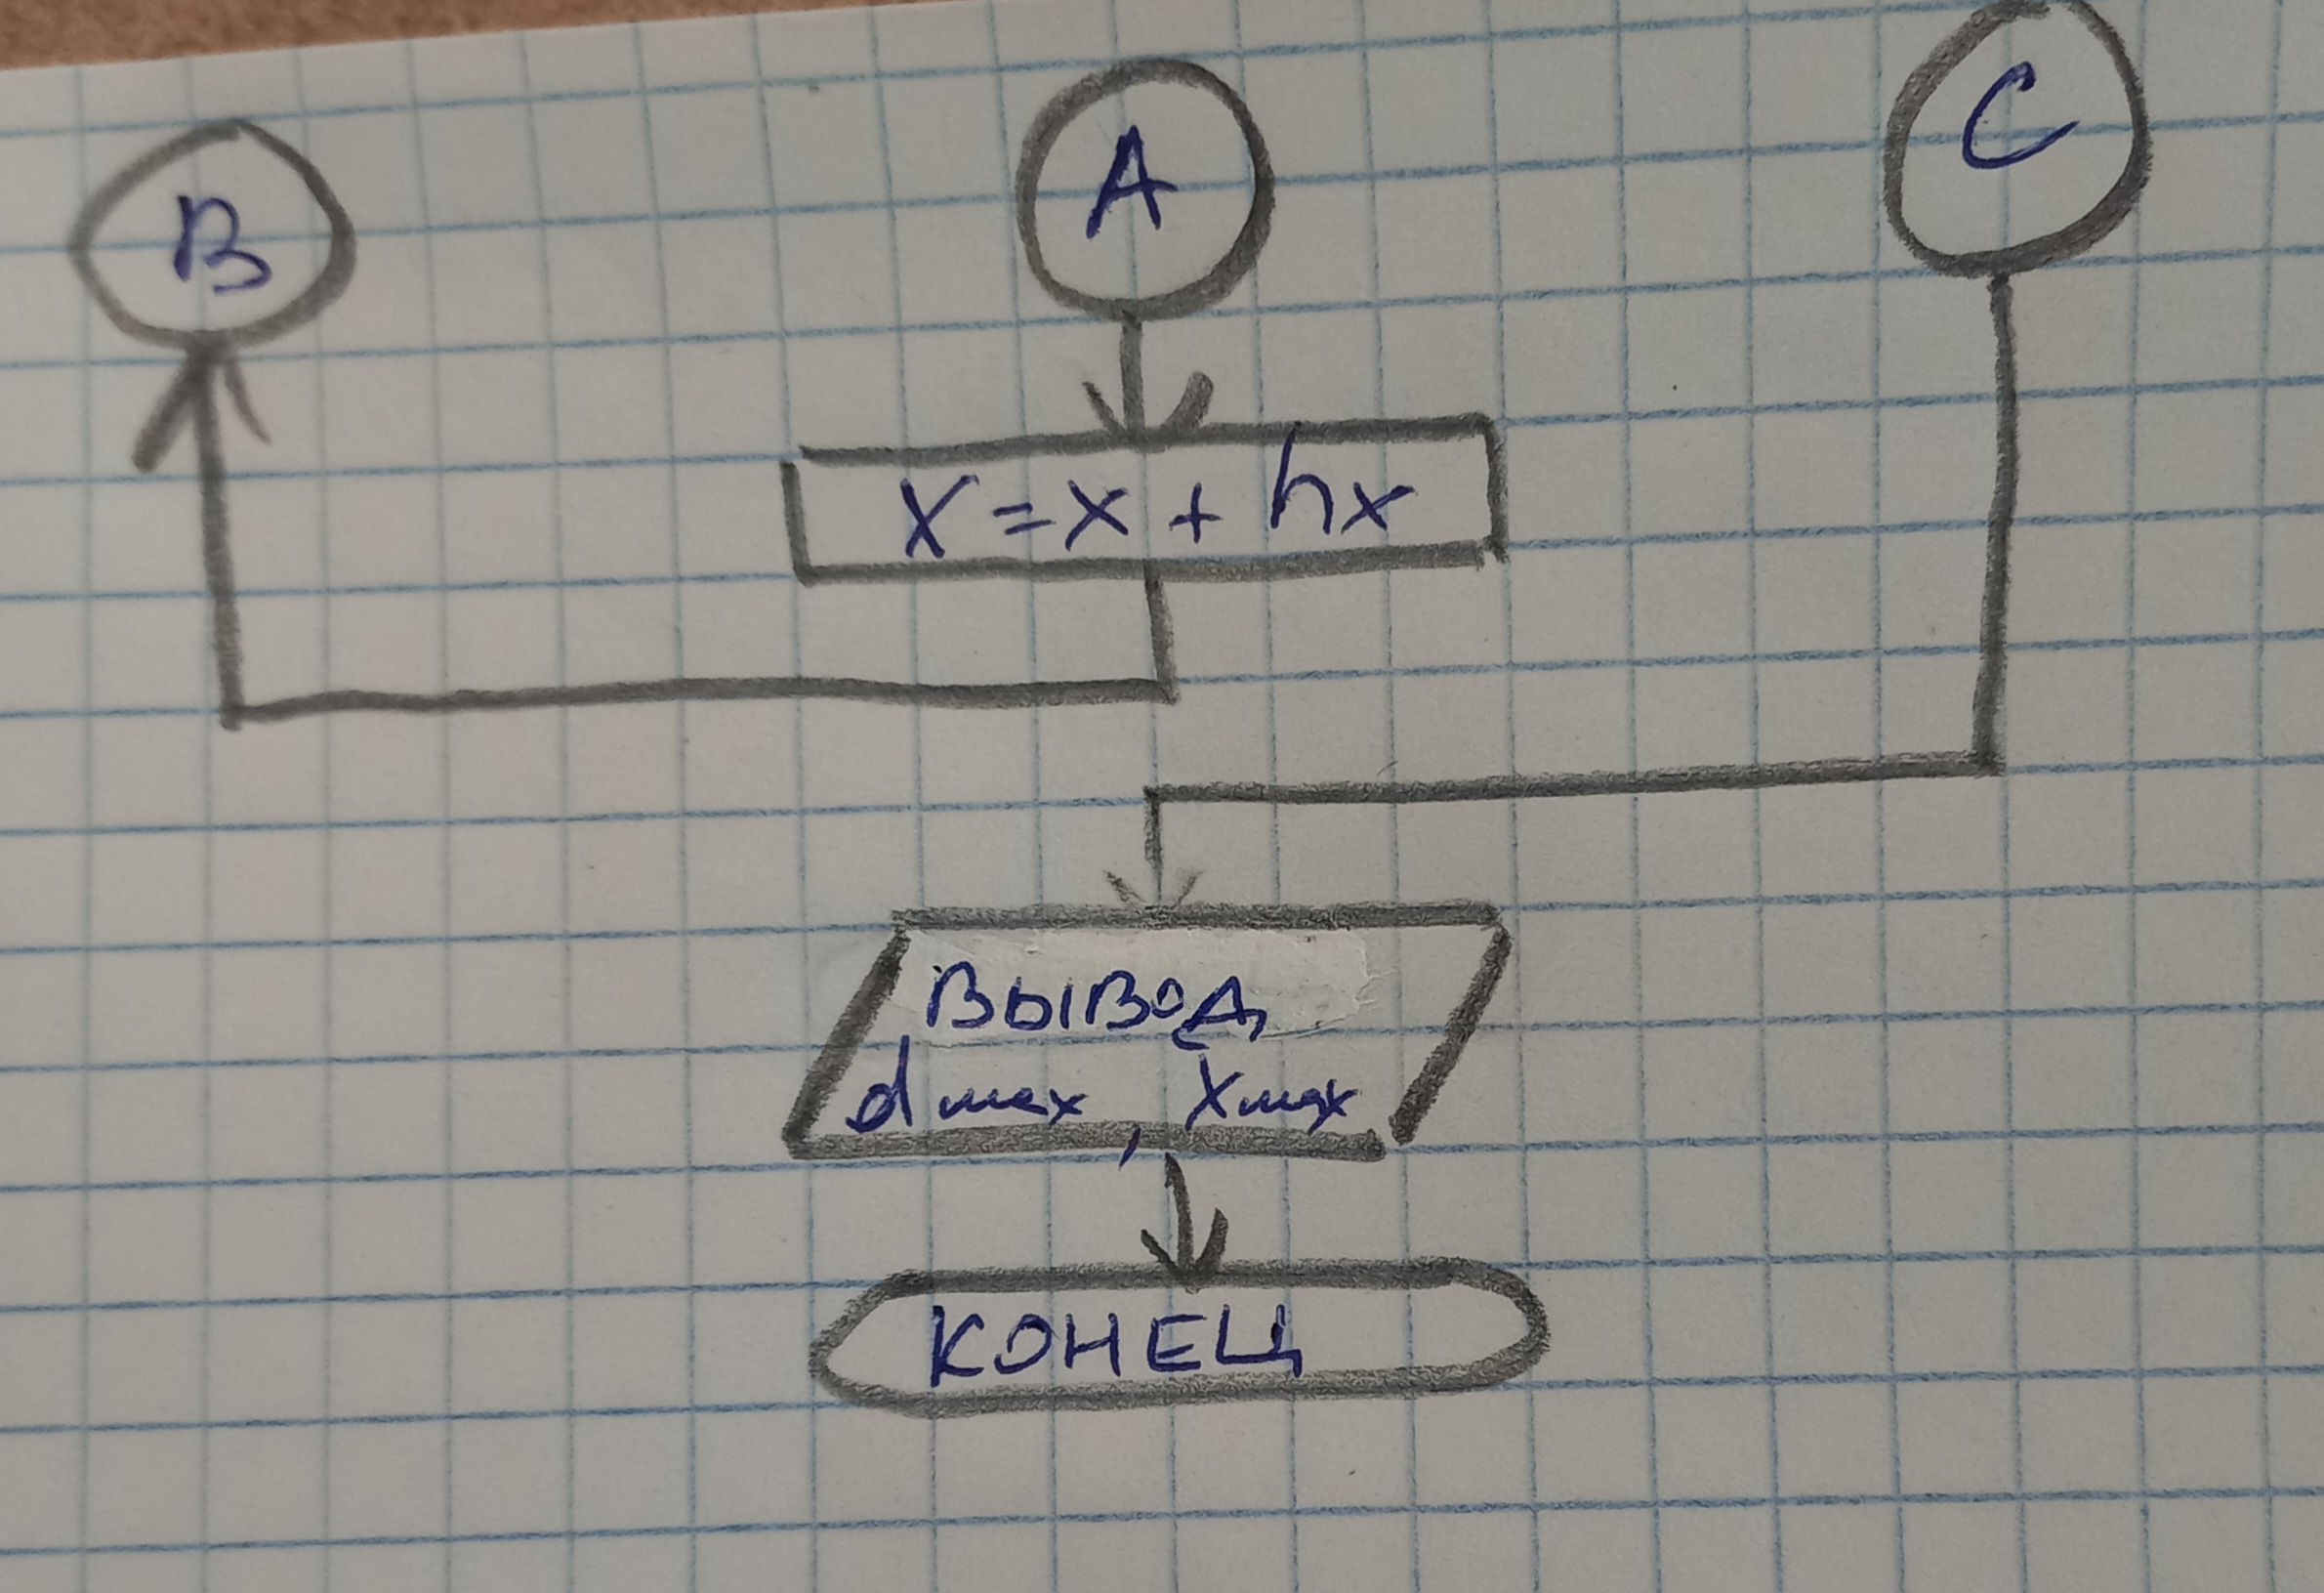 B
A
C
X=x + hx
ВЫВОД
dmax, Xmax
КОНЕЦ